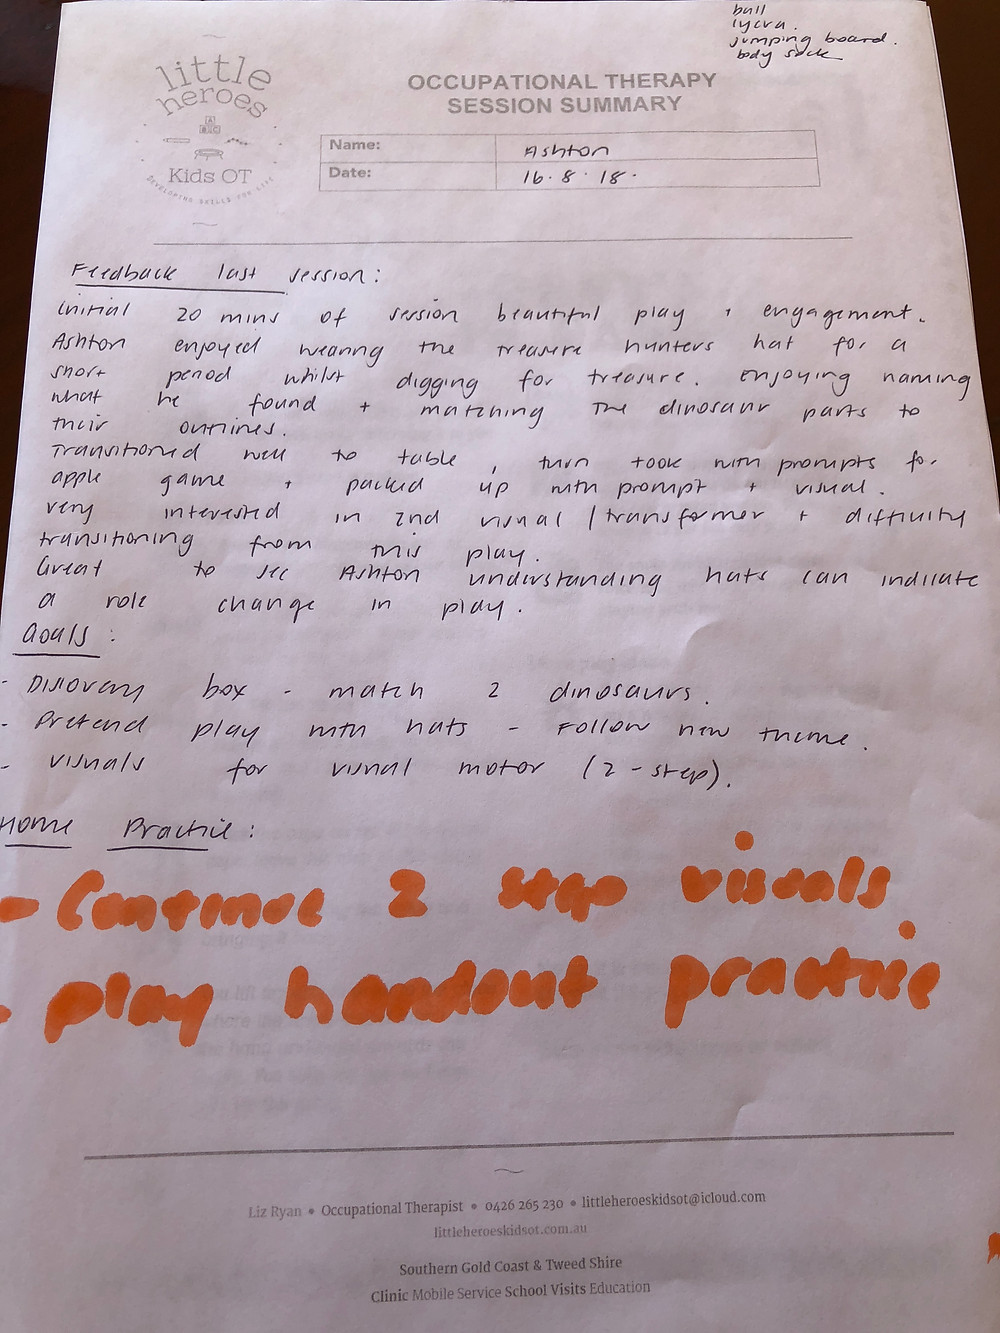 ball
lycra.
jumping board.
body sock
little
heroes
Kids OT
DEVELOPING SKILLS FOR LIFE
OCCUPATIONAL THERAPY
SESSION SUMMARY
Name: Ashton
Date: 16.8.18.
Feedback last session:
Initial 20 mins of session beautiful play + engagement.
Ashton enjoyed wearing the treasure hunters hat for a
short period whilst digging for treasure. Enjoying naming
what he found + matching the dinosaur parts to
their outlines.
Transitioned well to table, turn took with prompts for
apple game + packed up with prompt + visual.
very interested in 2nd visual / transformer + difficulty
transitioning from this play.
Great to see Ashton understanding hats can indicate
a role change in play.
Goals:
- Discovery box - match 2 dinosaurs.
- Pretend play with hats - Follow new theme.
- visuals for visual motor (2-step).
Home Practice:
- Continue 2 step visuals
- play handout practice
Liz Ryan • Occupational Therapist • 0426 265 230 • littleheroeskidsot@icloud.com
littleheroeskidsot.com.au
Southern Gold Coast & Tweed Shire
Clinic Mobile Service School Visits Education